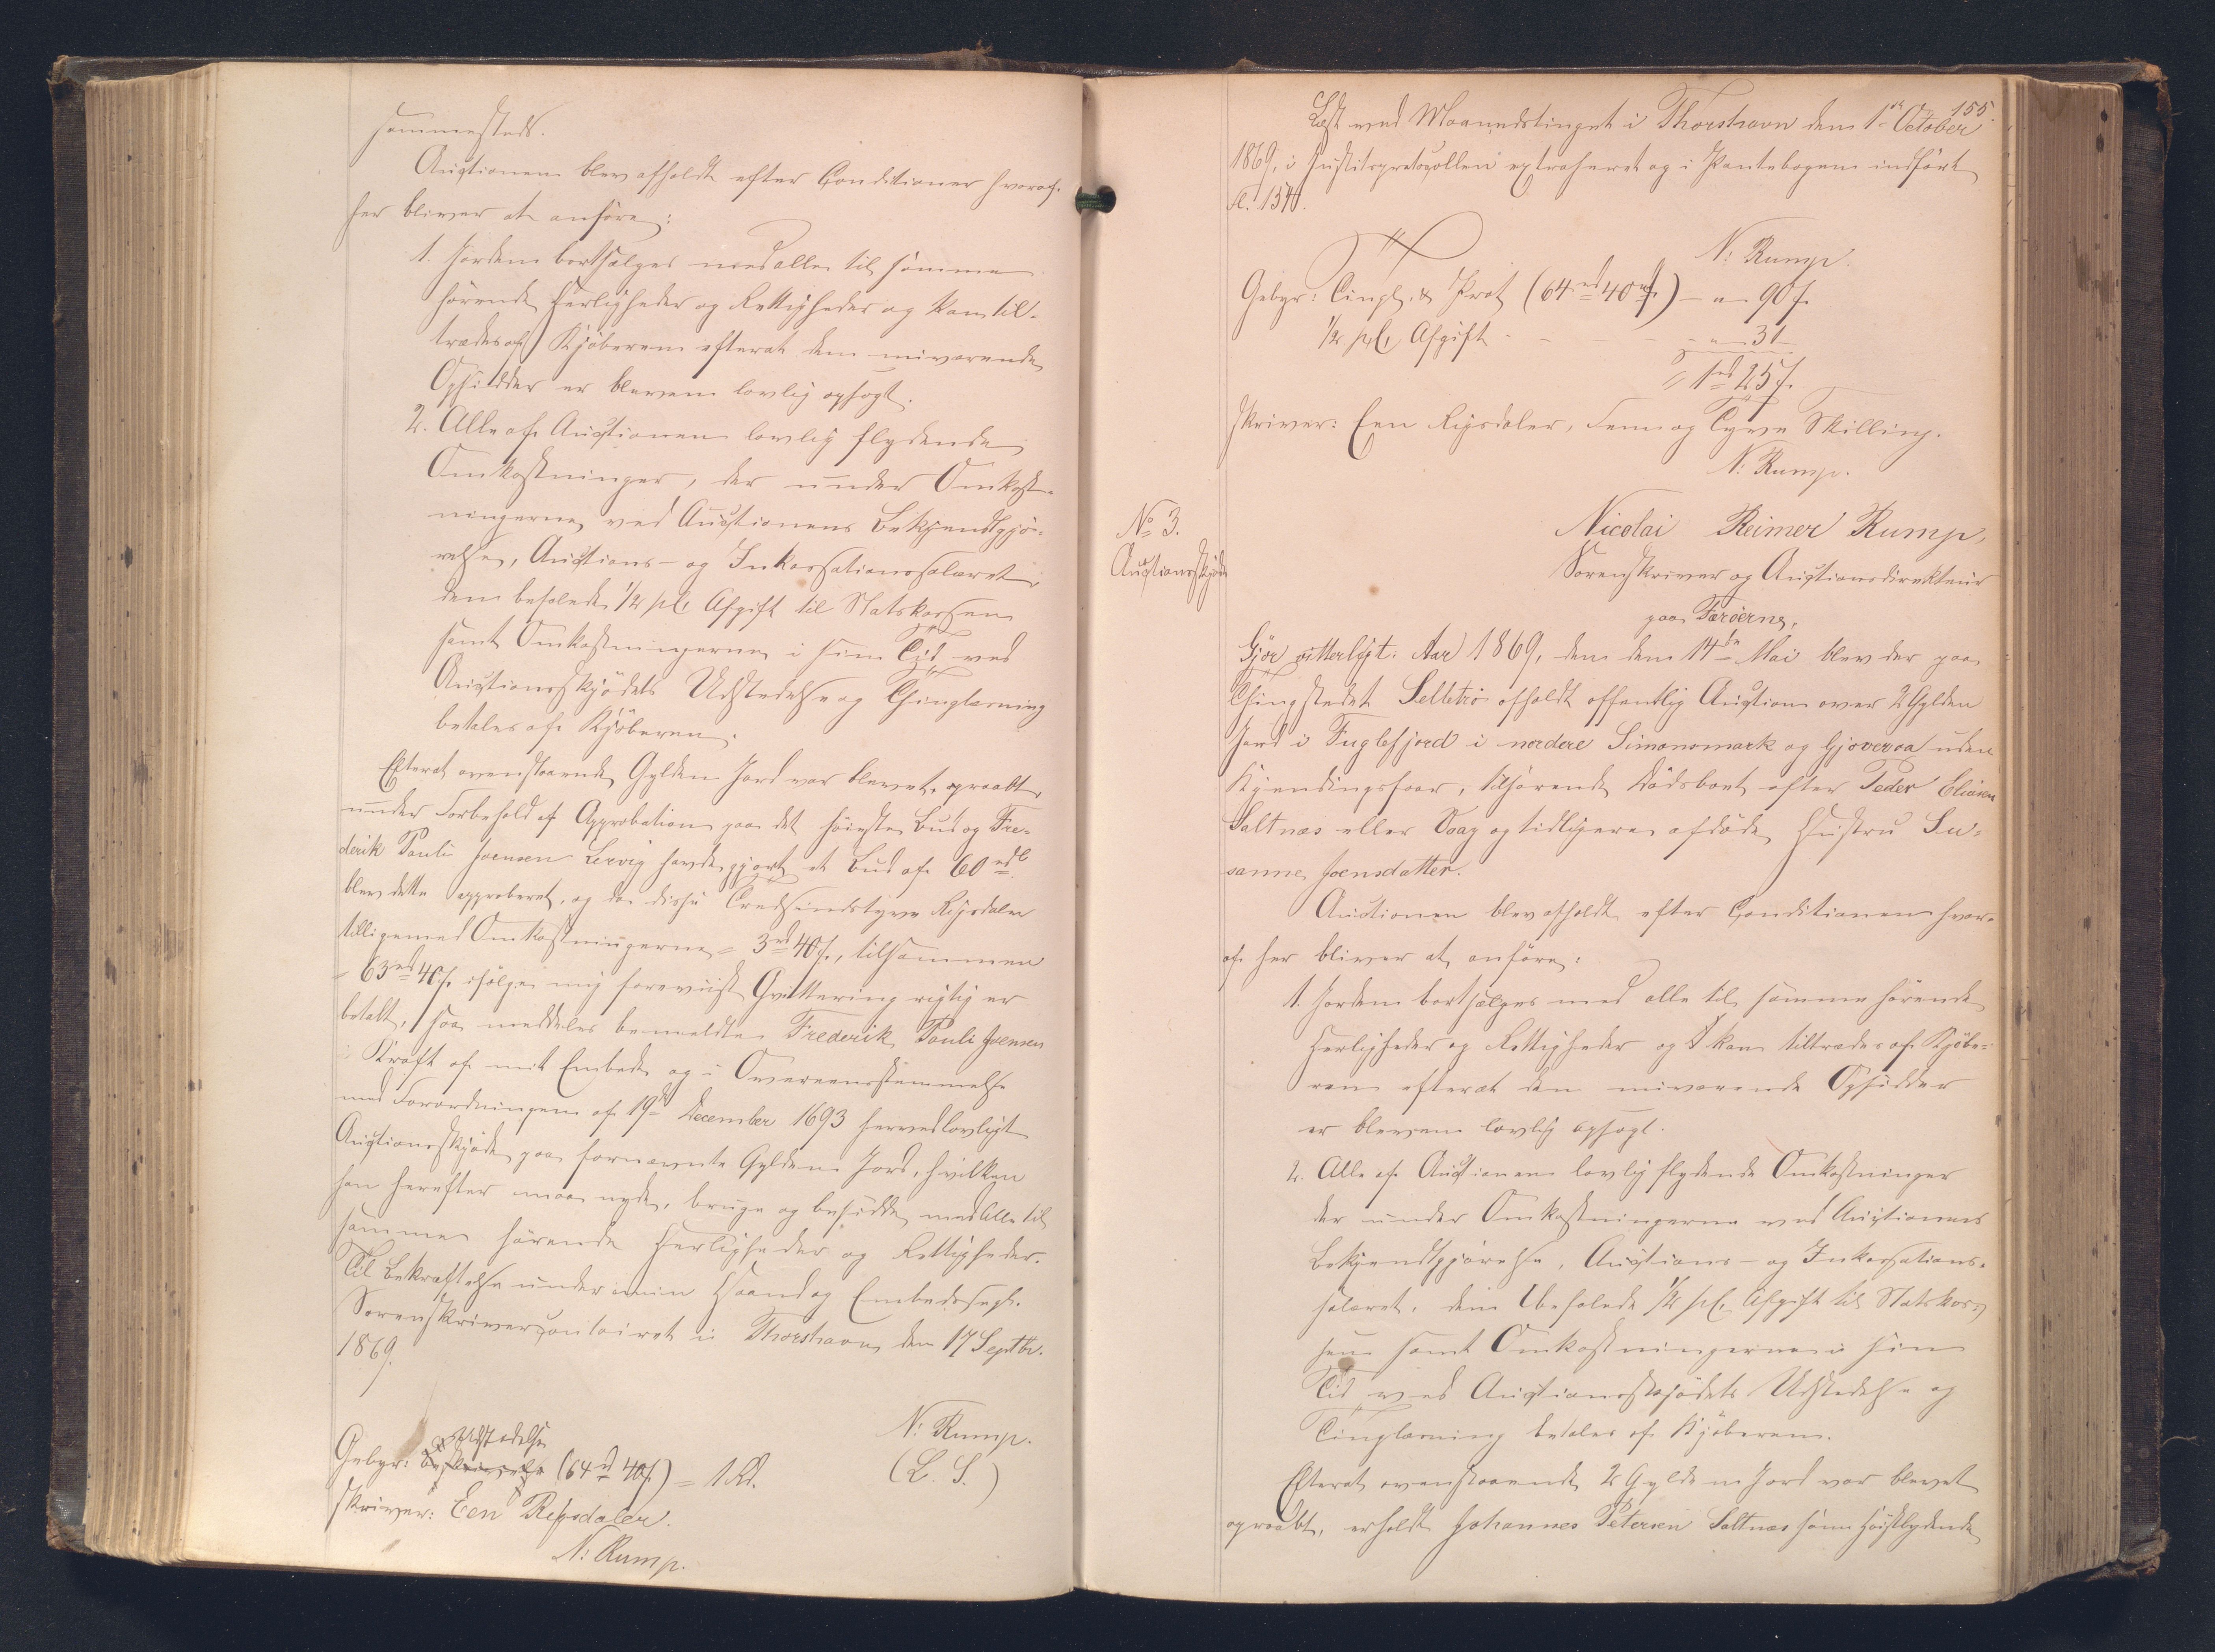 sammesteds.
Auctionen blev afholdt efter Conditioner hvoraf
her bliver at anföre:
1. Jorden bortsælges med alle til samme
hörende Herligheder og Rettigheder og kan til-
trædes af Kjöberen efterat den nuværende
Opsidder er bleven lovlig opsagt.
2. Alle af Auctionen lovlig flydende
Omkostninger, der under Omkost-
ningerne ved Auctionens Bekjendtgjö-
relse, Auctions- og Inkassationssalairet,
den befalede 1/2 pCt Afgift til Statskassen
samt Omkostningerne i sin Tid ved
Auctionsskjödets Udstedelse og Thinglæsning
betales af Kjöberen.
Efterat ovenstaaende Gylden Jord var blevet opraabt,
under Forbehold af Approbation paa det höieste Bud og Fre-
derik Pauli Joensen Lervig havde gjort et Bud af 60 rdl
blev dette approberet, og da disse Tredsindstyve Rigsdaler
tilligemed Omkostningerne = 3 rd 40 s., tilsammen
= 63 rd 40 s. ifölge mig foreviist Qvittering rigtig er
betalt, saa meddeles bemeldte Frederik Pauli Joensen
i Kraft af mit Embede og i Overeensstemmelse
med Forordningen af 19de December 1693 herved lovligt
Auctionsskjöde paa fornævnte Gylden Jord, hvilken
han herefter maa nyde, bruge og besidde med Alle til
samme hörende Herligheder og Rettigheder.
Til Bekræftelse under min Haand og Embedssegl.
Sorenskrivercontoiret i Thorshavn den 17 Septbr.
1869.
N: Rump.
(L. S.)
Udstedelse
Gebyr: Beskrivelse (64 rd 40 s) = 1 Rd.
skriver: Een Rigsdaler.
N: Rump.
155.
Læst ved Maanedstinget i Thorshavn den 1ste October
1869, i Justitsprotocollen extraheret og i Pantebogen indfört
fl. 154.
N: Rump.
Gebyr: Tingl. & Prot (64 rd 40 s.) - " - 90 s.
1/2 pCt Afgift - - - - " - 31 -
1 rd 25 s.
skriver: Een Rigsdaler, Fem og Tyve Skilling.
N: Rump.
No 3.
Auctionsskjöde
Nicolai Reimer Rump,
Sorenskriver og Auctionsdirekteur
paa Færöerne,
Gjör vitterligt: Aar 1869, den den 14de Mai blev der paa
Thingstedet Selletrö afholdt offentlig Auction over 2 Gylden
Jord i Fuglefjord i nerdere Simonsmark og Gjoveraa uden
Kjendingsfaar, tilhörende Dödsboet efter Peder Eliasen
Saltnæs eller Vaag og tidligere afdöde Hustru Su-
sanne Joensdatter.
Auctionen blev afholdt efter Conditionen hvor-
af her bliver at anföre:
1. Jorden bortsælges med alle til samme hörende
Herligheder og Rettigheder og kan tiltrædes af Kjöbe-
ren efterat den nuværende Opsidder
er bleven lovlig opsagt.
2. Alle af Auctionen lovlig flydende Omkostninger
der under Omkostningerne ved Auctionens
Bekjendtgjörelse, Auctions- og Inkassations-
salairet, den befalede 1/2 pCt Afgift til Statskas-
sen samt Omkostningerne i sin
Tid ved Auctionsskjödets Udstedelse og
Tinglæsning betales af Kjöberen.
Efterat ovenstaaende 2 Gylden Jord var blevet
opraabt, erholdt Johannes Petersen Saltnæs som höistbydende